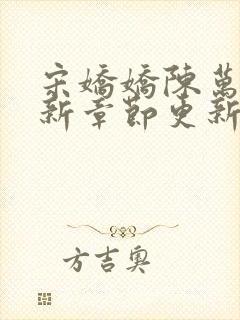 宋嬌嬌陳萬
新章節更新
方吉奧